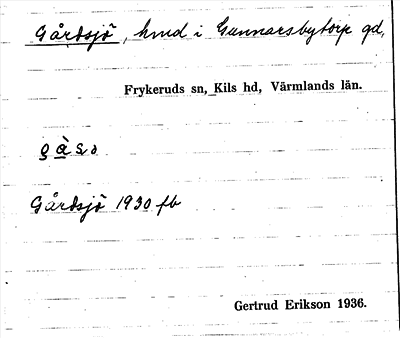 Gårdsjö, hmd i Gunnarsbytorp gd,
Frykeruds sn, Kils hd, Värmlands län.
Gårdsjö 1930 fb
Gertrud Erikson 1936.